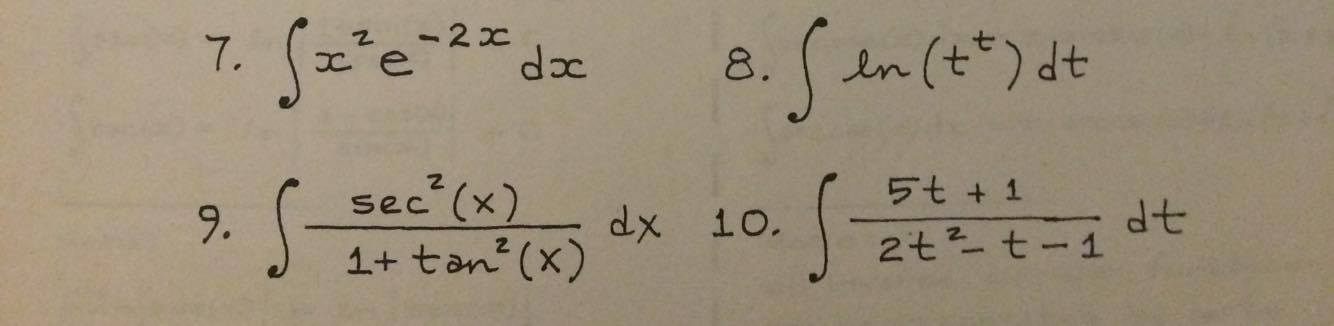 7. ∫x²e⁻²ˣ dx 8. ∫ ln(tᵗ) dt
9. ∫ sec²(x) / 1 + tan²(x) dx 10. ∫ 5t + 1 / 2t² - t - 1 dt